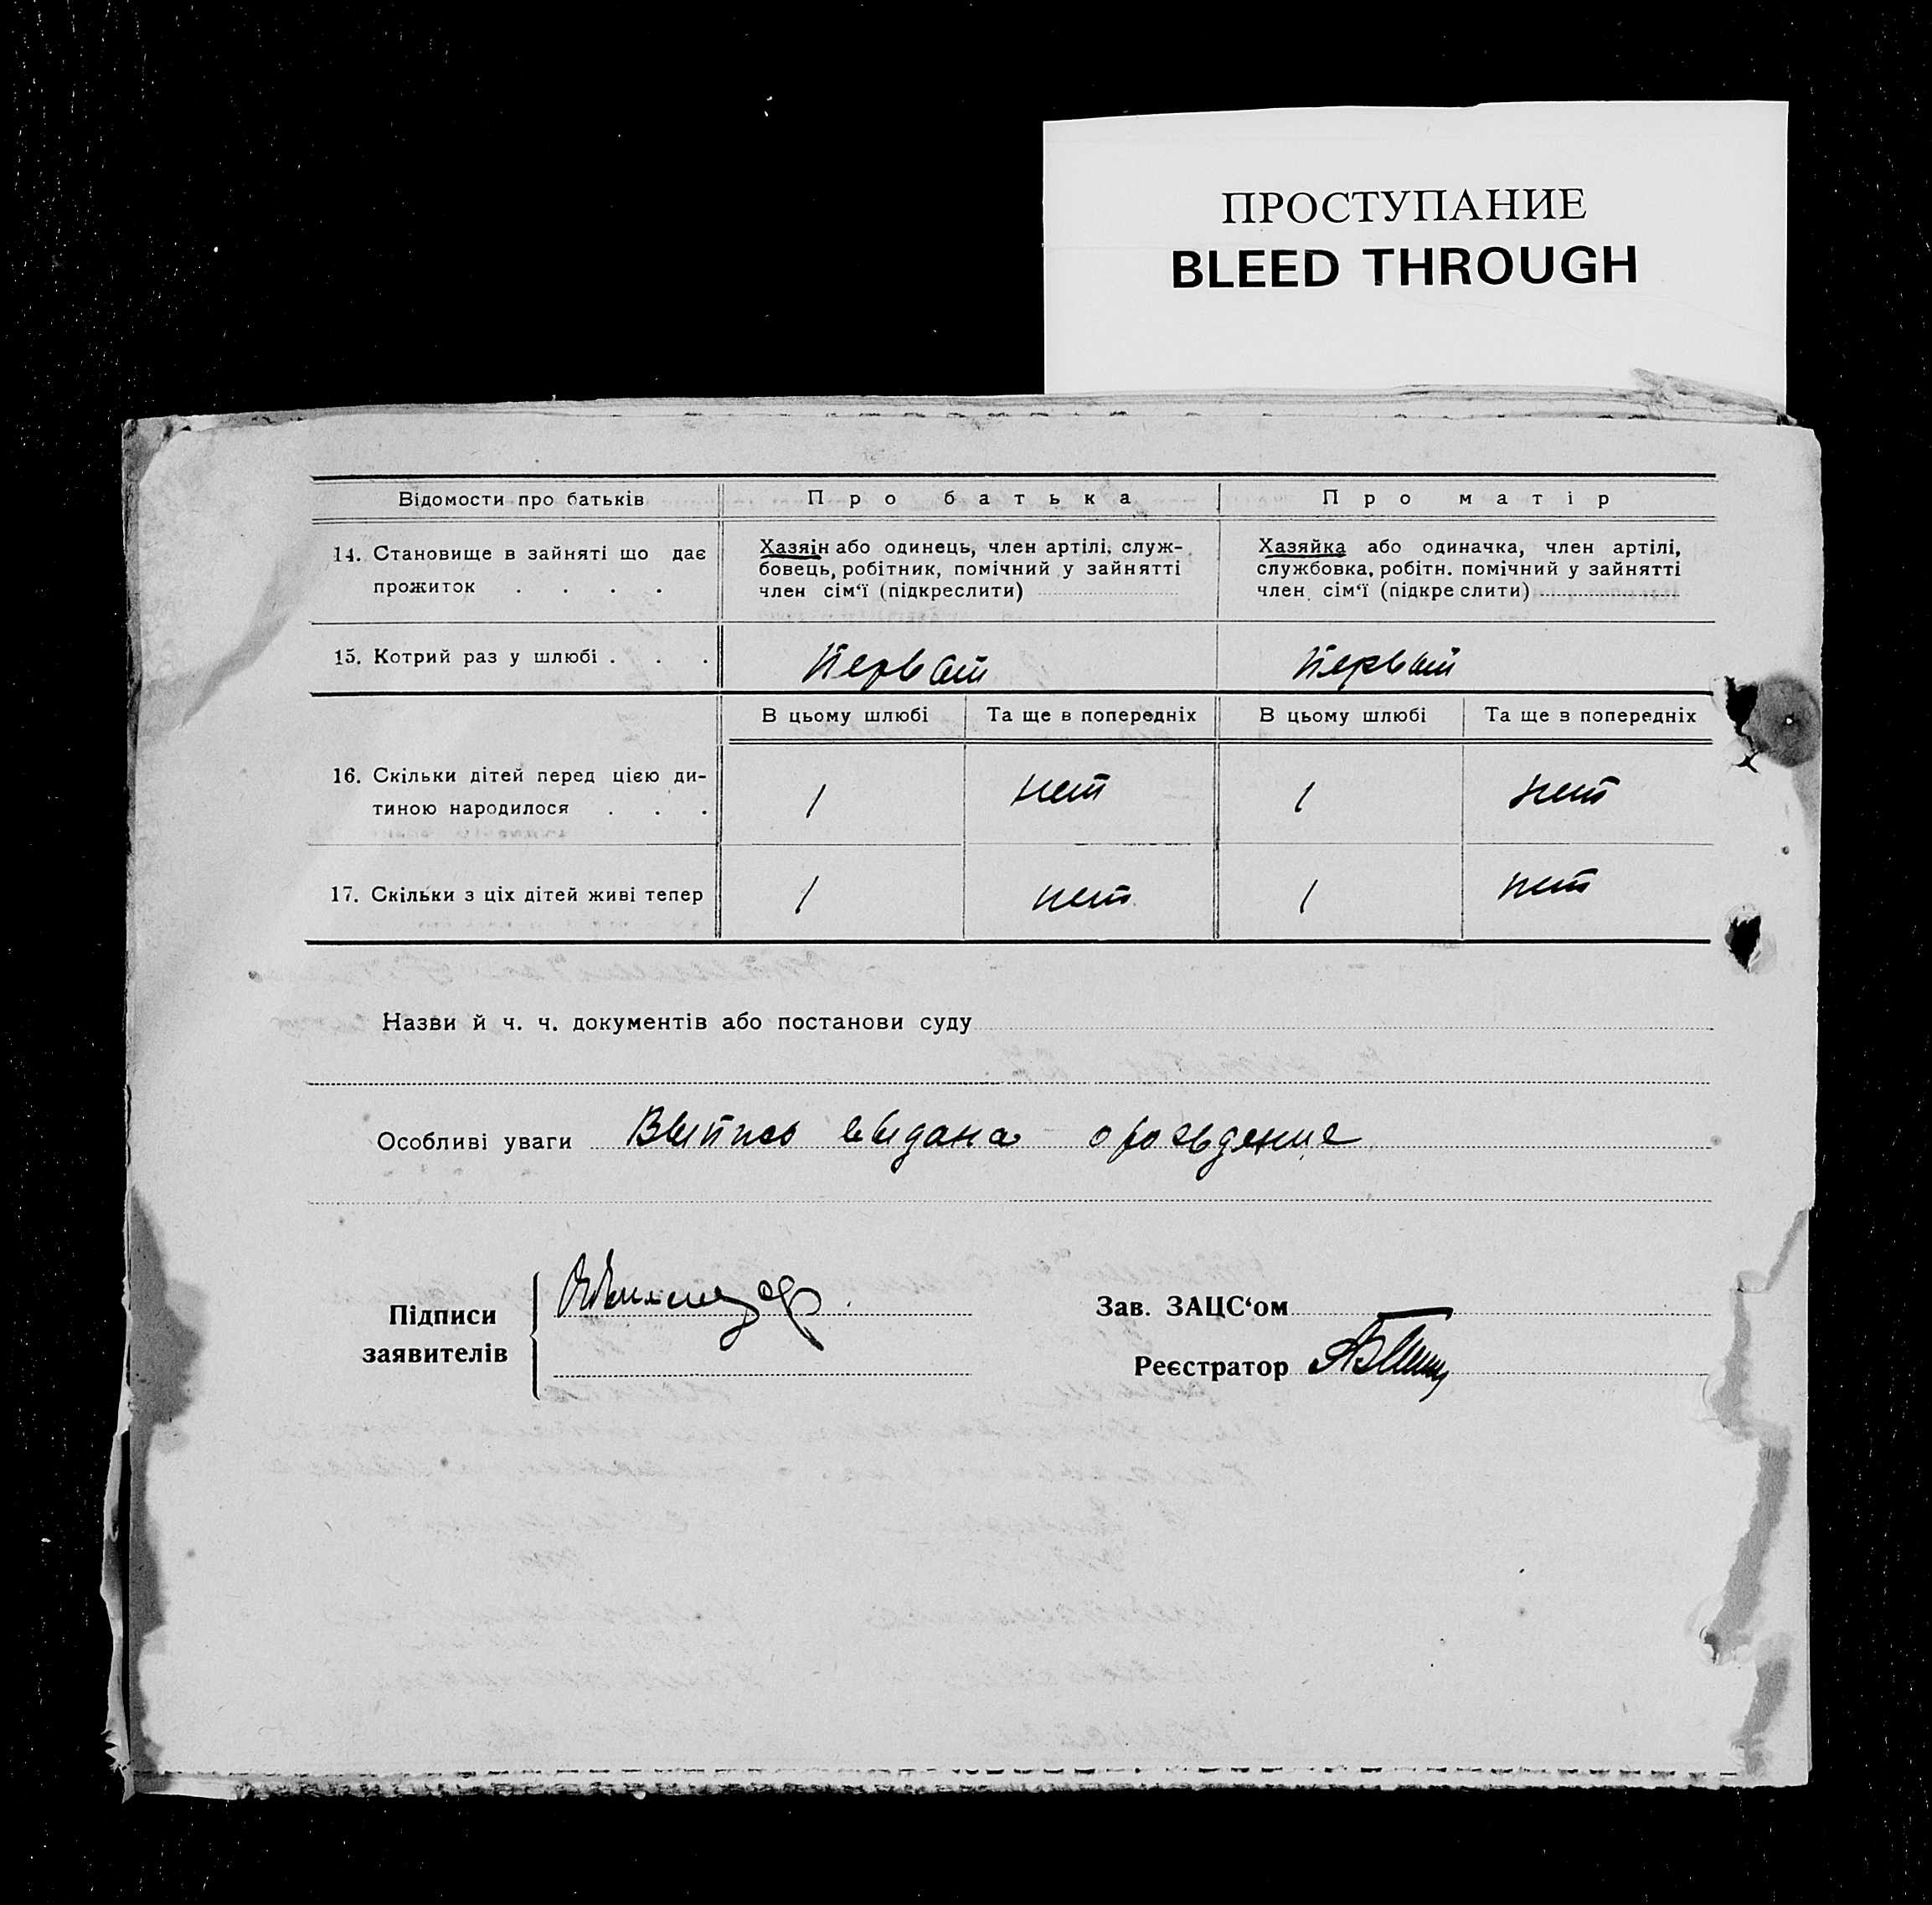 ПРОСТУПАНИЕ
BLEED THROUGH
Відомости про батьків Про батька Про матір
14. Становище в зайняті що дає
прожиток . . . .
Хазяїн або одинець, член артілі, служ-
бовець, робітник, помічний у зайнятті
член сім‘ї (підкреслити)
Хазяйка або одиначка, член артілі,
службовка, робітн. помічний у зайнятті
член сім‘ї (підкреслити)
15. Котрий раз у шлюбі . . . Первый Первый
В цьому шлюбі Та ще в попередніх В цьому шлюбі Та ще в попередніх
16. Скільки дітей перед цією ди-
тиною народилося . . . 1 нет 1 нет
17. Скільки з ціх дітей живі тепер 1 нет 1 нет
Назви й ч. ч. документів або постанови суду
Особливі уваги Выпись выдана о рождение
Підписи
заявителів
Зав. ЗАЦС‘ом
Реєстратор